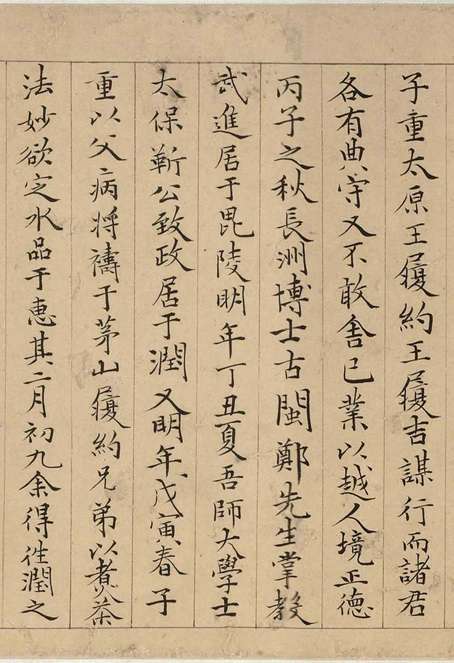 子重太原王履約王履吉謀行而諸君
各有典守又不敢舍己業以越人境正德
丙子之秋長洲博士古閩鄭先生掌教
武進居于毗陵明年丁丑夏吾師大學士
太保靳公致政居于潤又明年戊寅春子
重以父病將禱于茅山履約兄弟以煮茶
法妙欲定水品于惠其二月初九余得往潤之